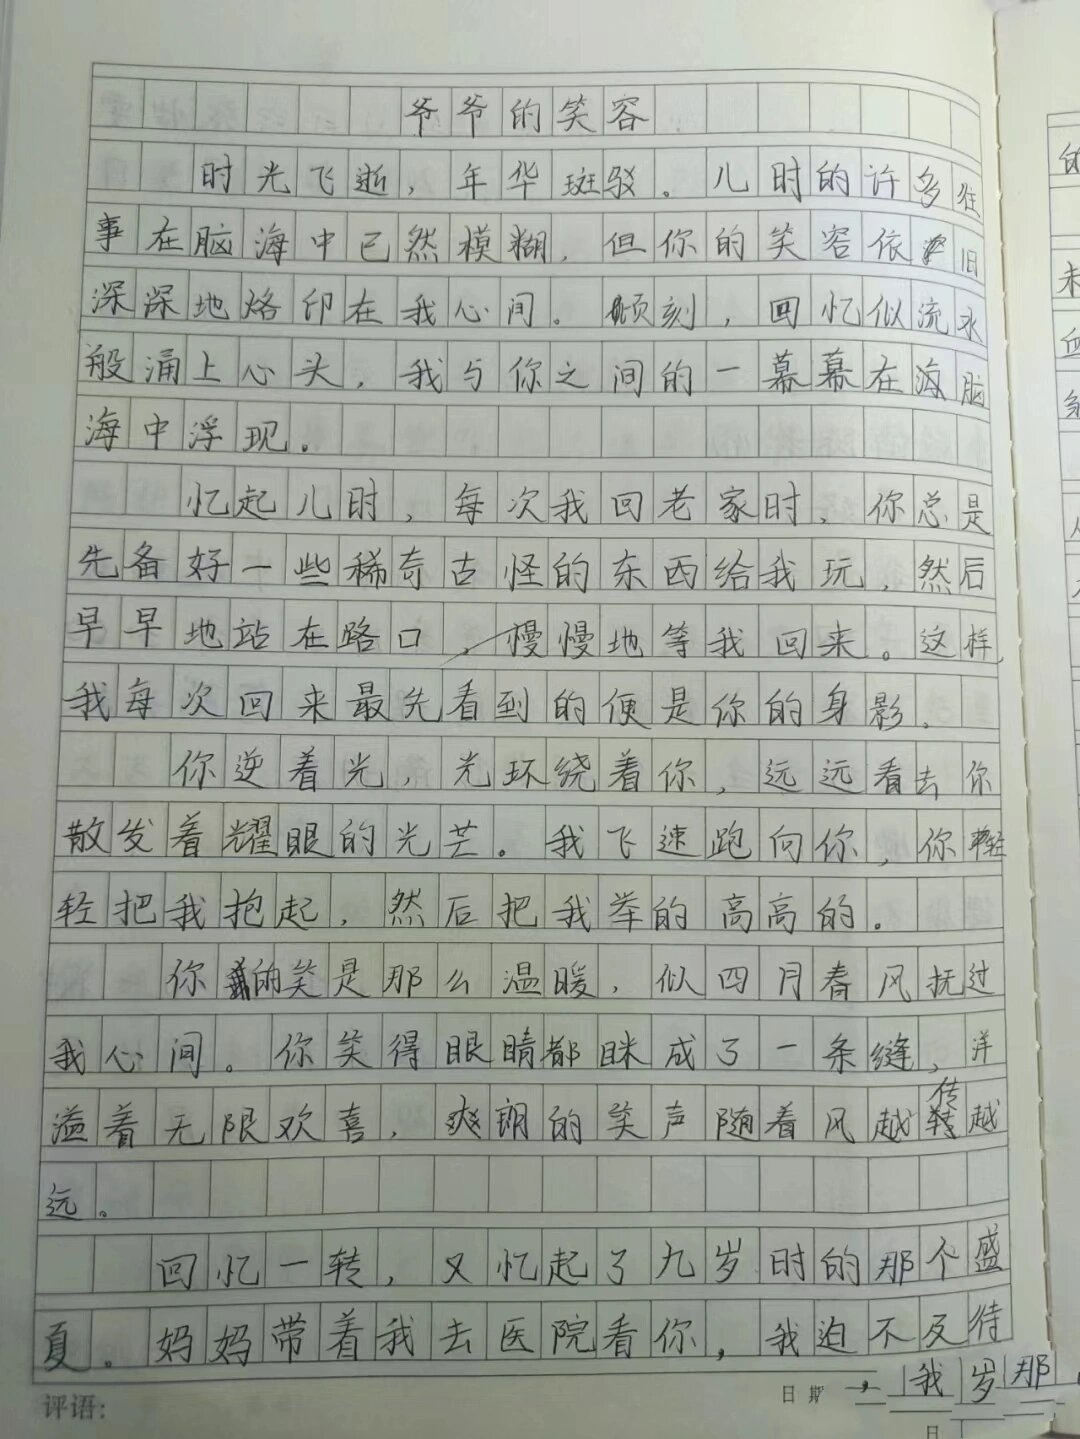 爷爷的笑容
时光飞逝，年华斑驳。儿时的许多往
事在脑海中已然模糊，但你的笑容依旧
深深地烙印在我心间。顷刻，回忆似流水
般涌上心头，我与你之间的一幕幕在海脑
海中浮现。
忆起儿时，每次我回老家时，你总是
先备好一些稀奇古怪的东西给我玩，然后
早早地站在路口，慢慢地等我回来。这样，
我每次回来最先看到的便是你的身影。
你逆着光，光环绕着你，远远看去你
散发着耀眼的光芒。我飞速跑向你，你轻
轻把我抱起，然后把我举的高高的。
你的笑是那么温暖，似四月春风抚过
我心间。你笑得眼睛都眯成了一条缝，洋
溢着无限欢喜，爽朗的笑声随着风越传越
远。
回忆一转，又忆起了九岁时的那个盛
夏。妈妈带着我去医院看你，我迫不及待
评语：
日期
，我岁那
日
的